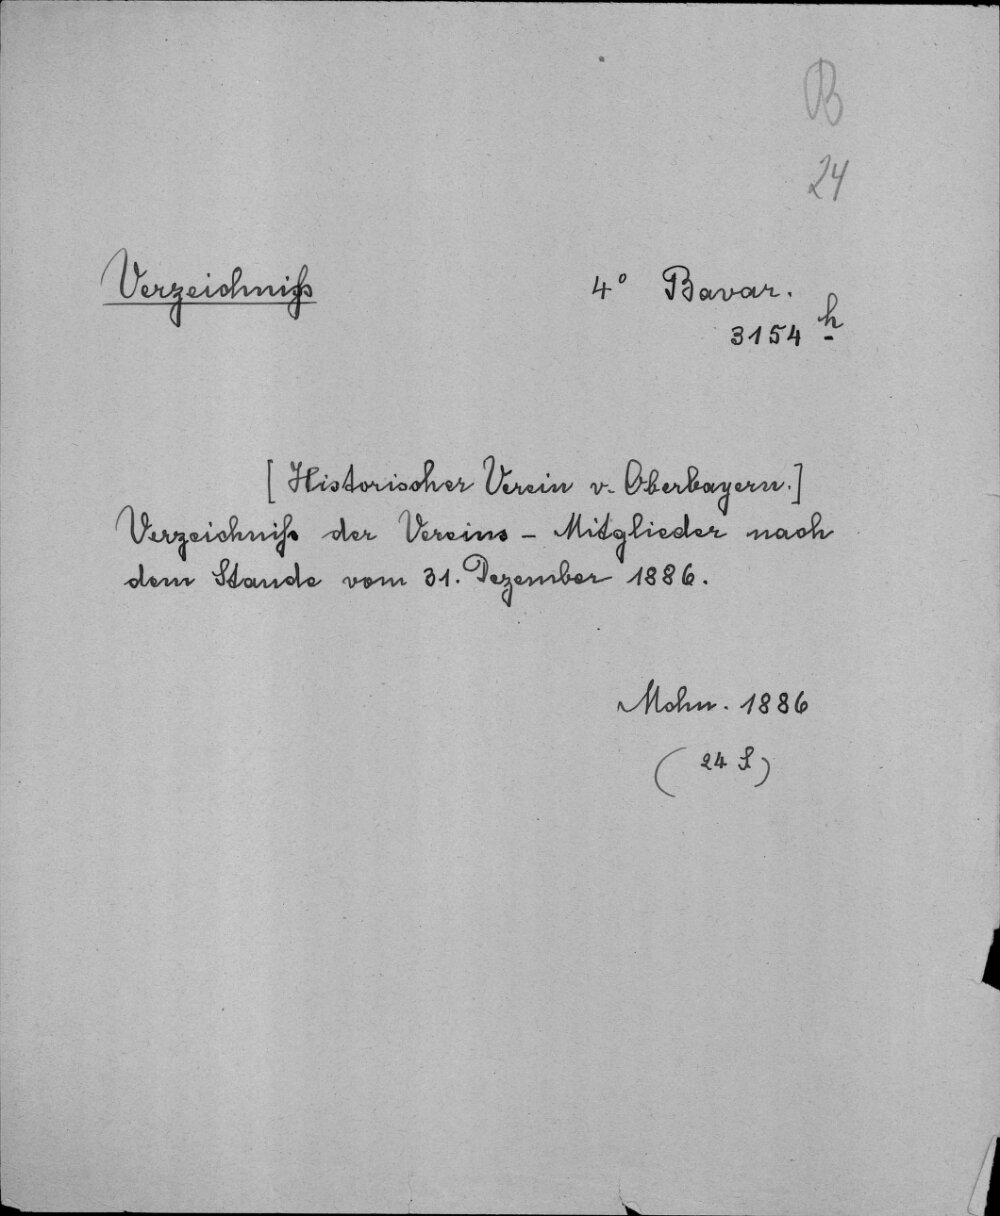 B
24
Verzeichniß 4° Bavar.
3154 h
[Historischer Verein v. Oberbayern.]
Verzeichniß der Vereins - Mitglieder nach
dem Stande vom 31. Dezember 1886.
Mchn. 1886
(24 S)